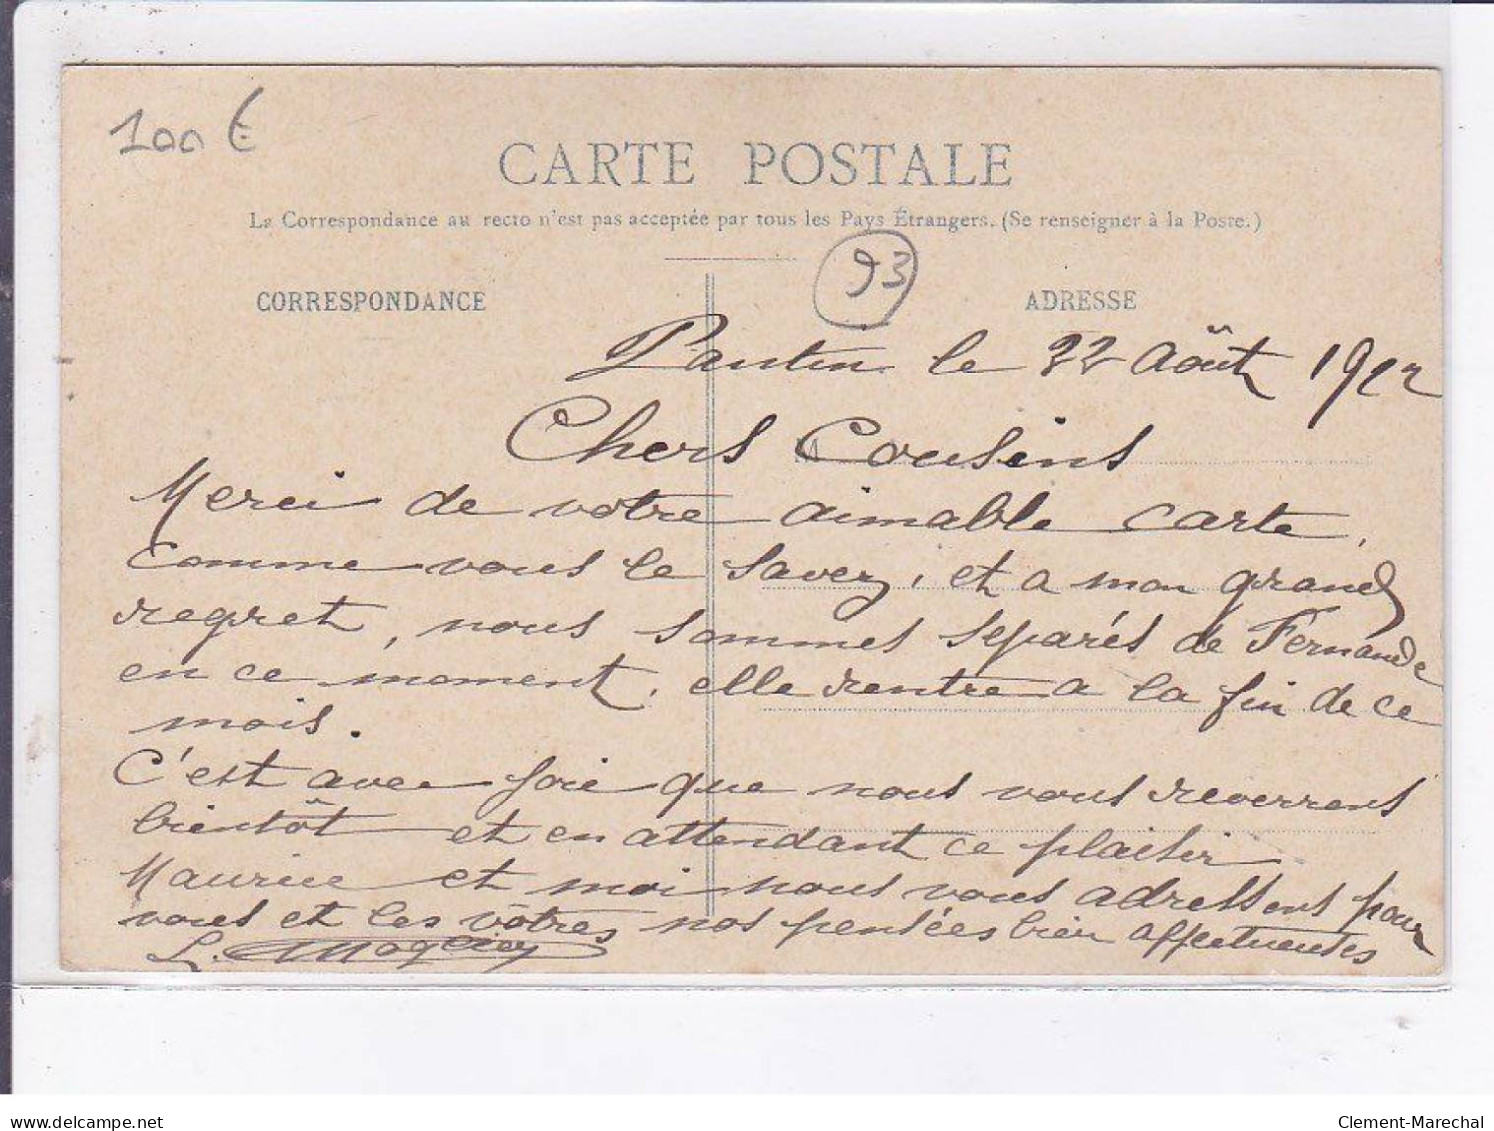 100 €
CARTE POSTALE
La Correspondance au recto n'est pas acceptée par tous les Pays Étrangers. (Se renseigner à la Poste.)
93
CORRESPONDANCE
ADRESSE
Pantin le 22 Août 1912
Chers Cousins
Merci de votre aimable carte,
comme vous le savez, et a mon grand
regret, nous sommes separés de Fernande
en ce moment, elle rentre a la fin de ce
mois.
C'est avec joie que nous vous reverrons
bientôt et en attendant ce plaisir
Maurice et moi nous vous adressons pour
vous et les vôtres nos pensées bien affectueuses
L.
delcampe.net
Clement-Marechal